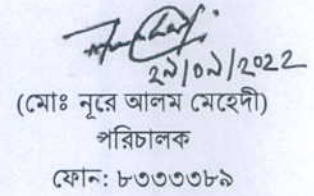 ২৯/০৯/2022
(মোঃ নূরে আলম মেহেদী)
পরিচালক
ফোন: ৮৩৩৩৩৮৯